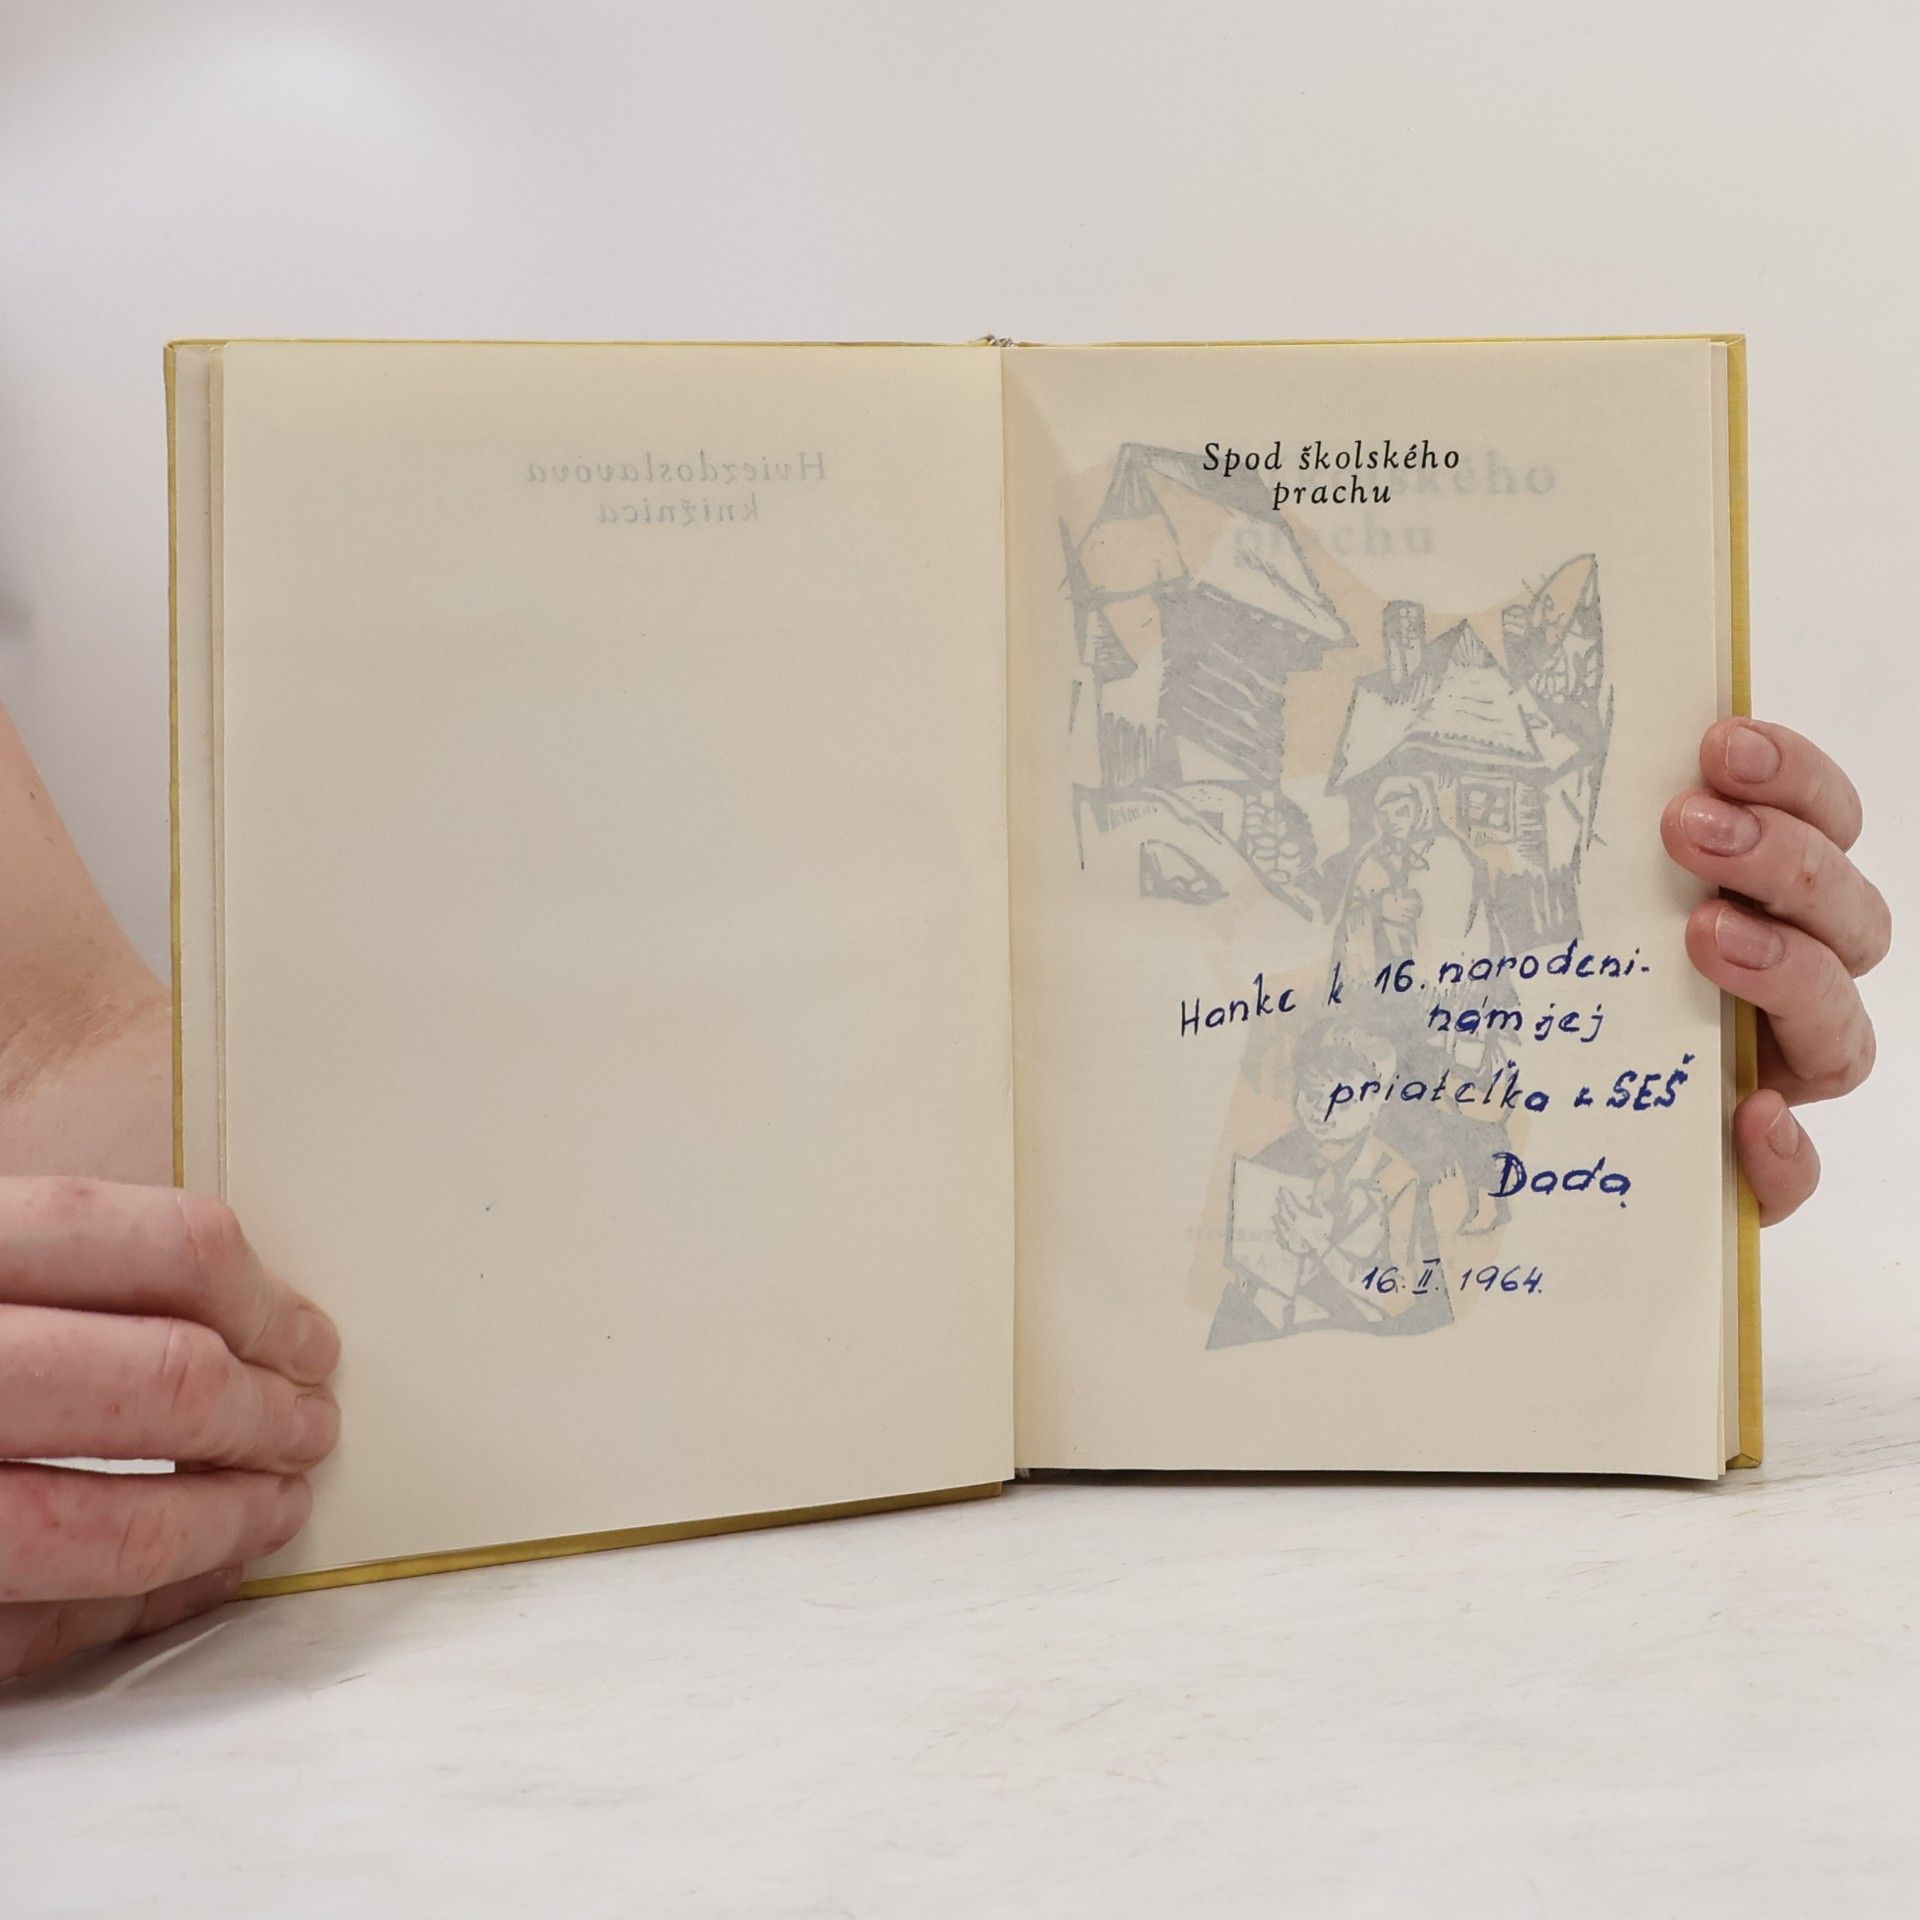 Hviezdoslavova
knižnica
Spod školského
prachu
Hanke k 16. narodeni-
nám jej
priateľka z SEŠ
Dada
16. II. 1964.